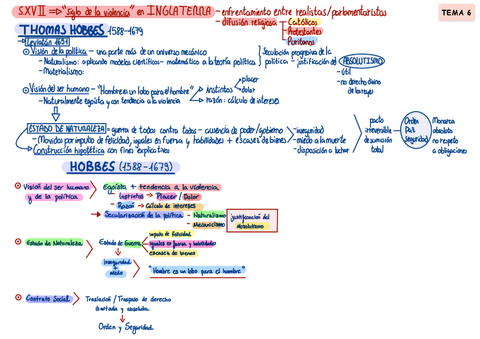 S.XVII => "siglo de la violencia" en INGLATERRA - enfrentamiento entre realistas/parlamentaristas
TEMA 6
- difusión religiosa - Católicos
Protestantes
Puritanos
THOMAS HOBBES 1588-1679
Leviatán 1651
Visión de la política - una parte más de un universo mecánico
- Naturalismo: aplicando modelos científicos-matemático a la teoría política
- Materialismo:
Secularización progresiva de la
política - justificación del ABSOLUTISMO
- útil
- no derecho divino
de los reyes
Visión del ser humano - "Hombre es un lobo para el hombre"
- Naturalmente egoísta y con tendencia a la violencia
instintos
placer
dolor
razón: cálculo de intereses
ESTADO DE NATURALEZA = guerra de todos contra todos - ausencia de poder/gobierno
- Movidos por impulso de felicidad, iguales en fuerza y habilidades + escasez de bienes
Construcción hipotética con fines explicativos
- inseguridad
- miedo a la muerte
- disposición a luchar
pacto
irreversible
de sumisión
total
Orden
Paz
Seguridad
Monarca
absoluto
no sujeto
a obligaciones
HOBBES (1588-1679)
Visión del ser humano
y de la política
Egoísta + tendencia a la violencia
Instintos → Placer / Dolor
Razón → Cálculo de intereses
Secularización de la política - Naturalismo
- Mecanicismo
justificación del
absolutismo
Estado de Naturaleza
Estado de Guerra
impulso de felicidad
iguales en fuerza y habilidades
escasez de bienes
Inseguridad
+
Miedo
"Hombre es un lobo para el hombre"
Contrato Social
Traslación / Traspaso de derecho
ilimitada y absoluta
Orden y Seguridad